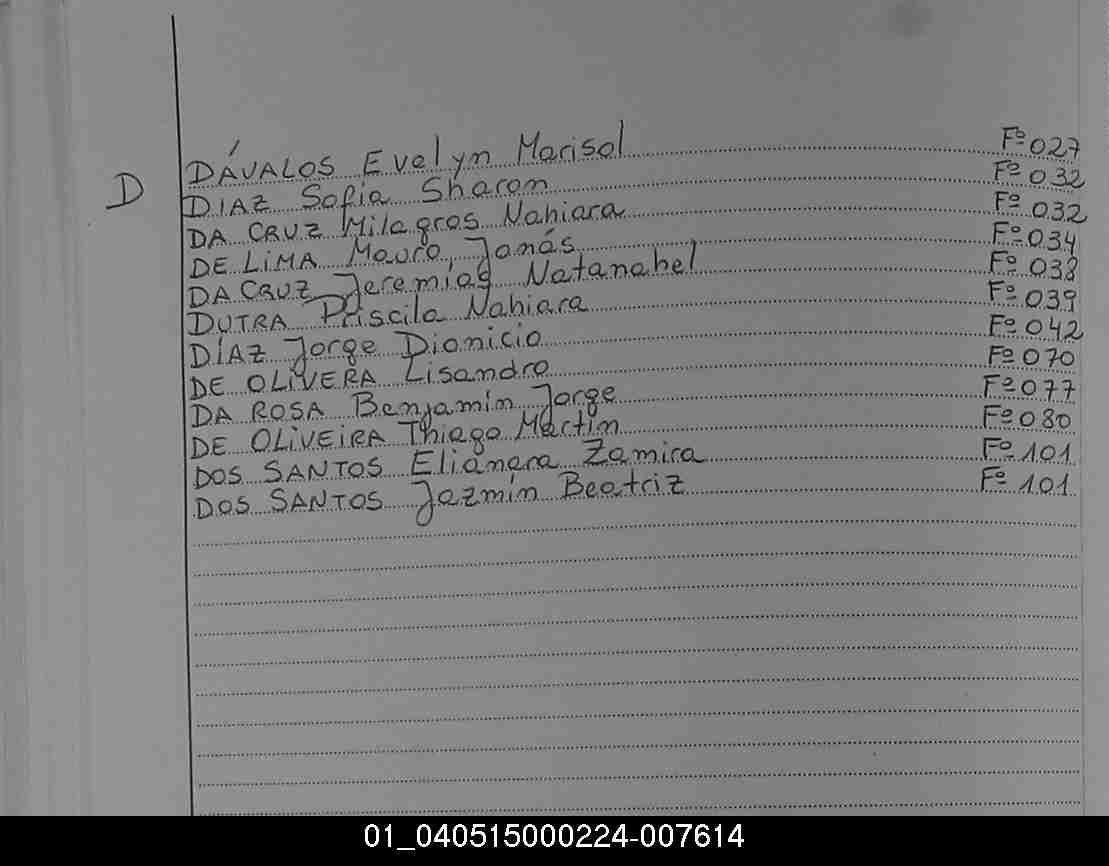 D
DÁVALOS Evelyn Marisol Fº 027
DIAZ Sofia Sharon Fº 032
DA CRUZ Milagros Nahiara Fº 032
DE LIMA Mauro, Jonás Fº 034
DA CRUZ Jeremías Natanahel Fº 038
DUTRA Priscila Nahiara Fº 039
DÍAZ Jorge Dionicio Fº 042
DE OLIVERA Lisandro Fº 070
DA ROSA Benjamin Jorge Fº 077
DE OLIVEIRA Thiago Martin Fº 080
DOS SANTOS Elianara Zamira Fº 101
DOS SANTOS Jazmín Beatriz Fº 101
01_040515000224-007614